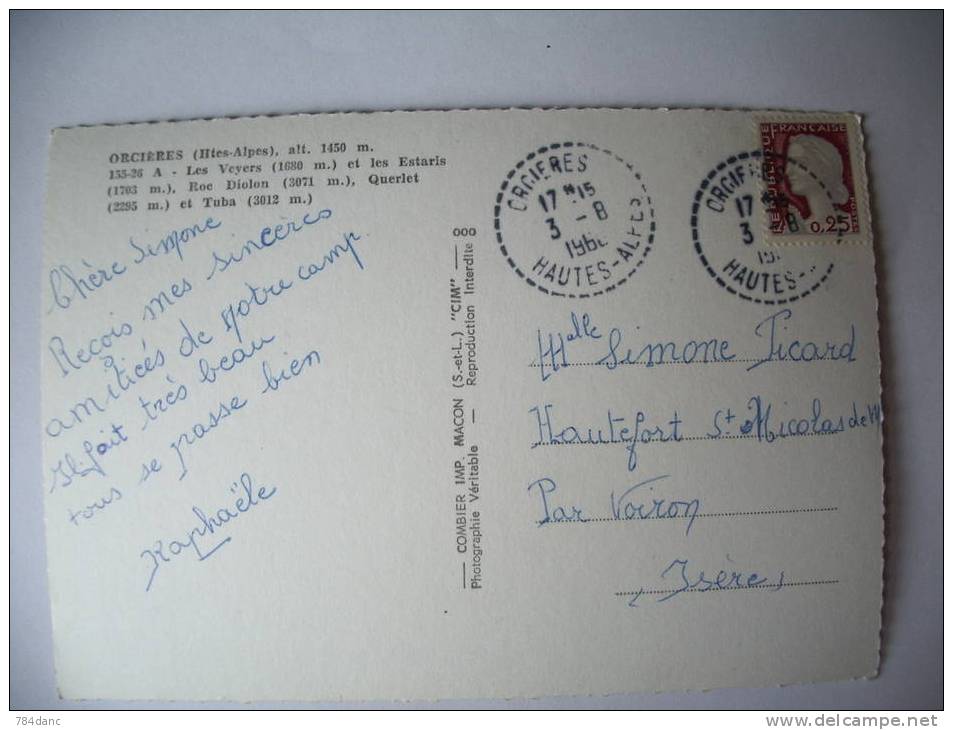 ORCIÈRES (Htes-Alpes), alt. 1450 m.
155-26 A - Les Veyers (1680 m.) et les Estaris
(1703 m.), Roc Diolon (3071 m.), Querlet
(2295 m.) et Tuba (3012 m.)
Chère Simone
Reçois mes sincères
amitiés de notre camp
Il fait très beau
tous se passe bien
Raphaële
COMBIER IMP. MACON (S.-et-L.) "CIM"
Photographie Véritable - Reproduction Interdite
ORCIERES
17 H 15
3 - 8
HAUTES-ALPES
ORCIERES
17
3 8
HAUTES-
REPUBLIQUE FRANÇAISE
POSTES
0,25
Melle Simone Picard
Hautefort St Nicolas de M
Par Voiron
(Isère)
784danc
www.delcampe.net